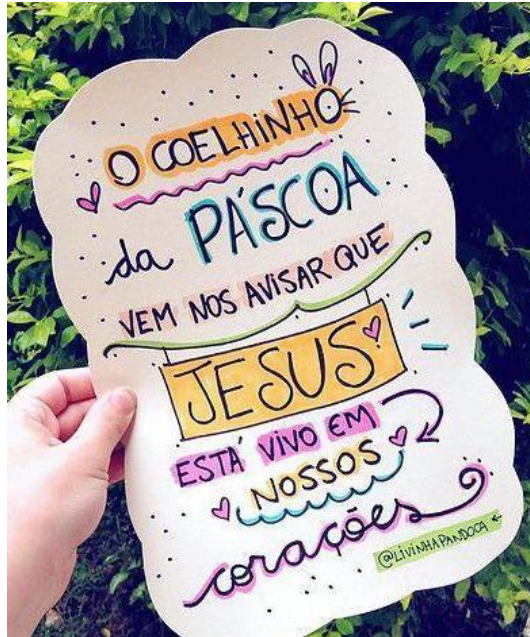 O COELHINHO
da PÁSCOA
VEM NOS AVISAR QUE
JESUS
ESTÁ VIVO EM
NOSSOS
corações
@LIVINHAPANDOCA